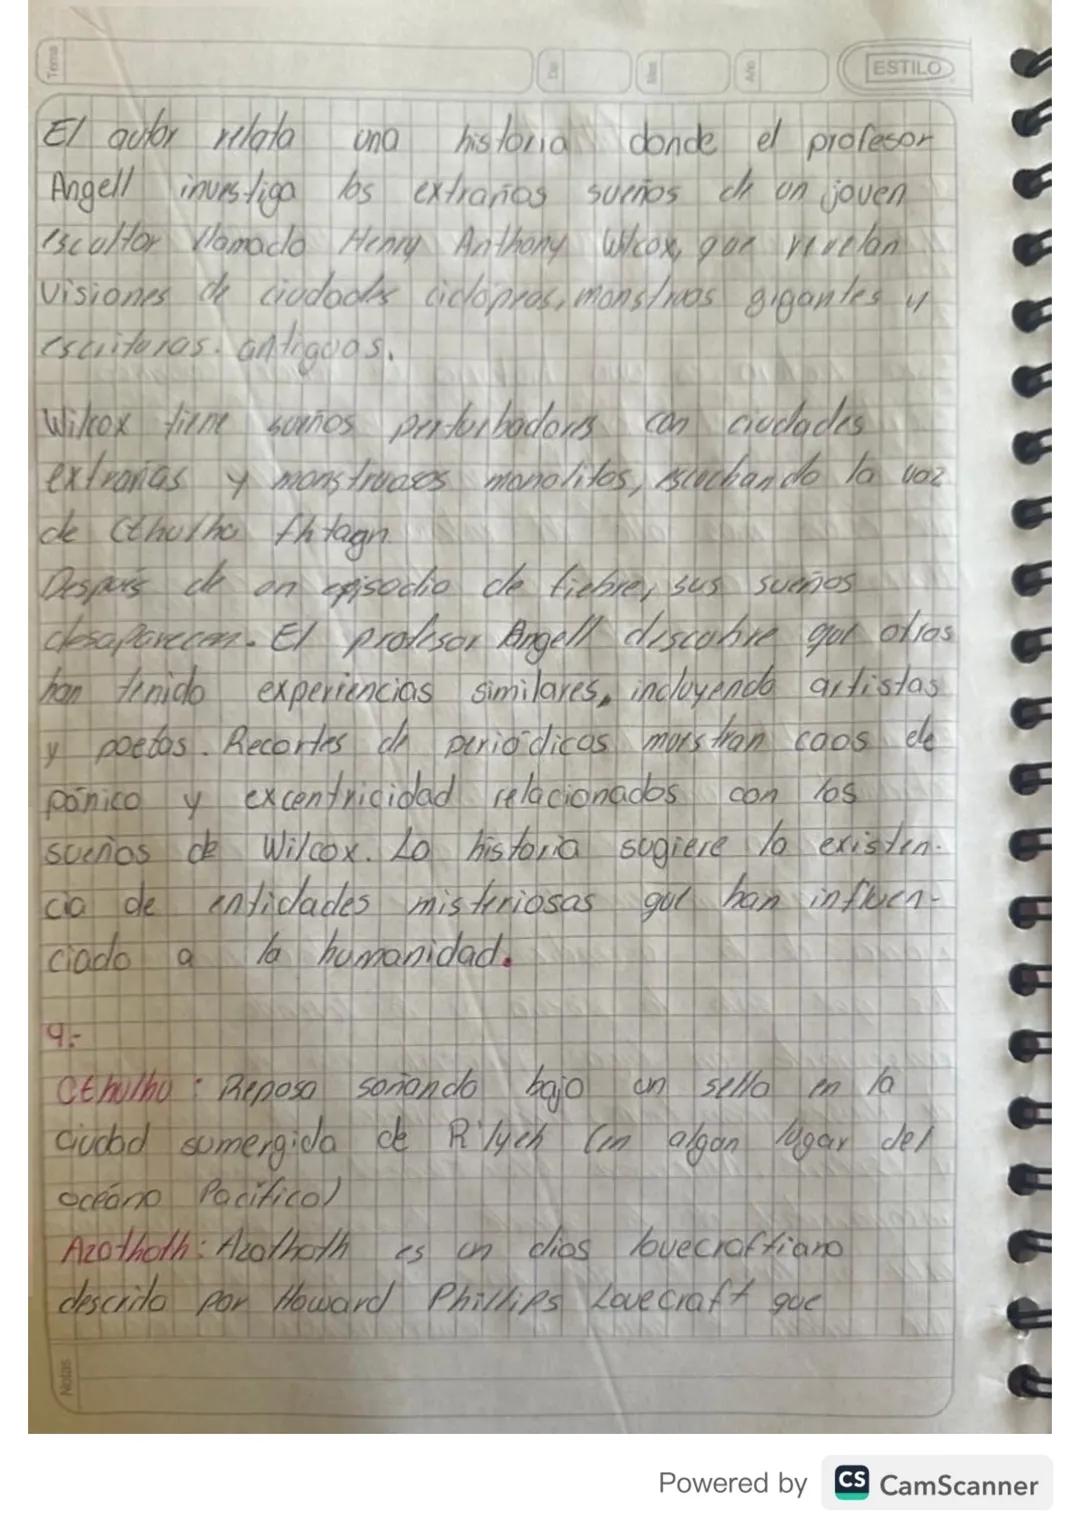 Tema
Día
Mes
Año
ESTILO
El autor relata una historia donde el profesor
Angell investiga los extraños sueños de un joven
escultor llamado Henry Anthony Wilcox, que revelan
visiones de ciudades ciclópeas, monstruos gigantes y
escrituras. antiguos.
Wilcox tiene sueños perturbadores con ciudades
extrañas y monstruosos monolitos, escuchando la voz
de Cthulhu fhtagn
Después de un episodio de fiebre, sus sueños
desaparecen. El profesor Angell descubre que otros
han tenido experiencias similares, incluyendo artistas
y poetas. Recortes de periódicos muestran caos de
pánico y excentricidad relacionados con los
sueños de Wilcox. La historia sugiere la existen-
cia de entidades misteriosas que han influen-
ciado a la humanidad.
9.-
Cthulhu: Reposa soñando bajo un sello en la
ciudad sumergida de R'lyeh (en algun lugar del
océano Pacifico)
Azathoth: Azathoth es un dios lovecraftiano
descrito por Howard Phillips Lovecraft que
Notas
Powered by CS CamScanner